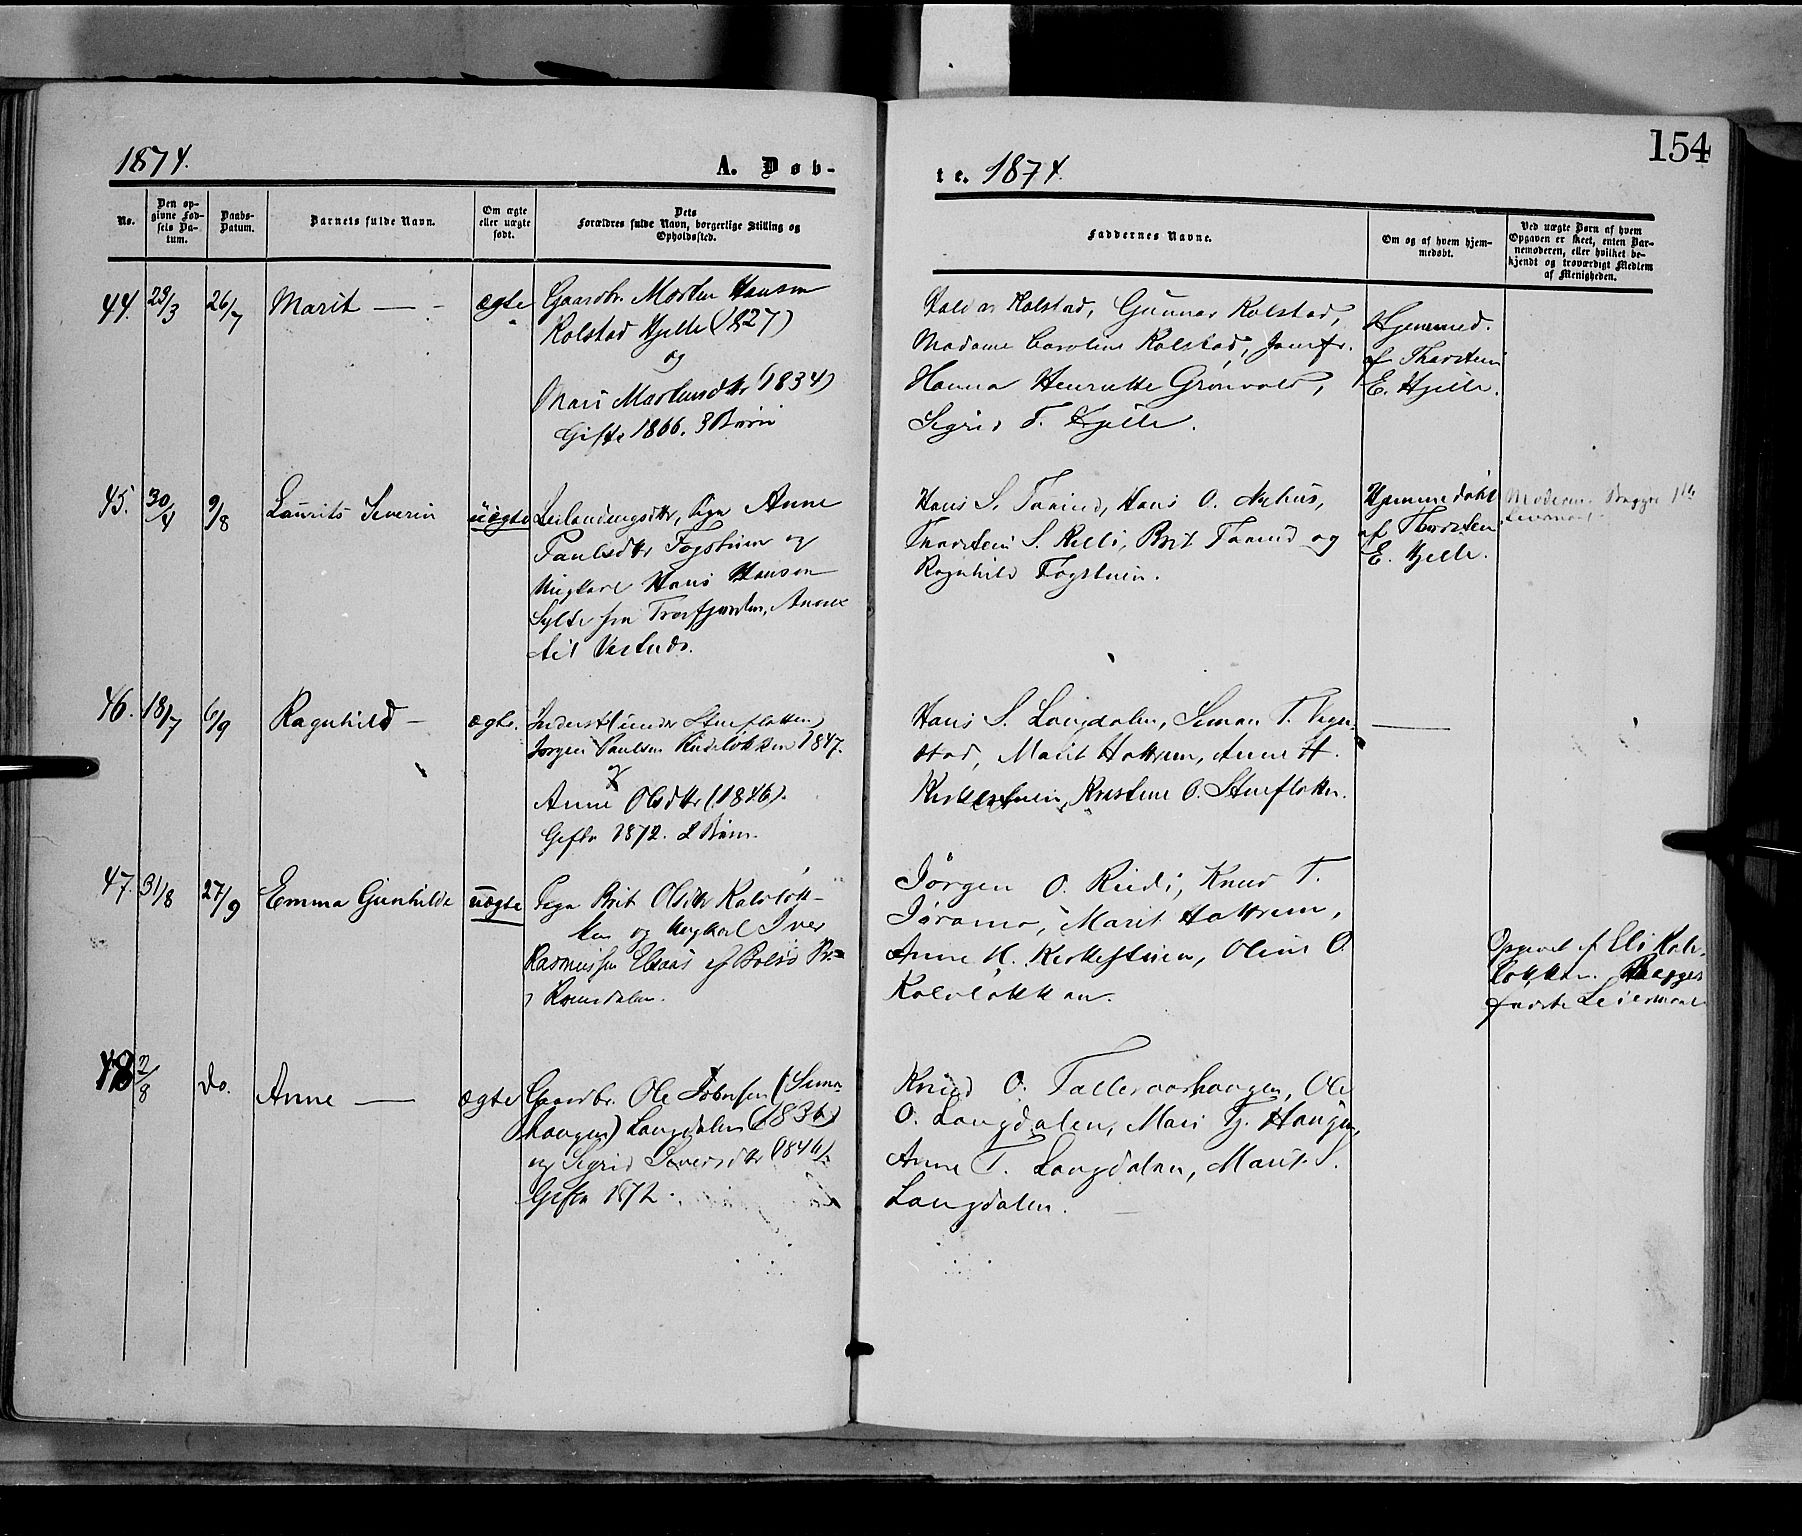 154
1874.
A. Døb-
te. 1874.
No.
Den op-
givne Fød-
sels Da-
tum.
Daabs-
Datum.
Barnets fulde Navn.
Om ægte
eller uægte
født.
Dets
Forældres fulde Navn, borgerlige Stilling og
Opholdssted.
Faddernes Navne.
Om og af hvem hjem-
medøbt.
Ved uægte Børn af hvem
Opgaven er skeet, enten Bar-
nemoderen, eller hvilket be-
kjendt og troværdigt Medlem
af Menigheden.
44. 29/3 26/7 Marit — ægte
Gaardbr. Morten Hansen
Kolstad Hjelle (1827)
og
Mari Mortensdtr (1834)
Gifte 1866. 3 Børn
Halvor Kolstad, Gunnar Kolstad,
Madame Caroline Kolstad, Jomfr.
Hanna Henriette Grønvold,
Sigrid T. Hjelle.
Hjemmed.
af Thorstein
E. Hjelle.
45. 30/4 9/8 Laurits Severin uægte
Pige Anne
Paulsdtr Fogstuen og
Ungkarl Hans Hansen
Sylte fra Annex
til
Hans S. Hans O. Nyhus,
Thorstein S. Brit og
Ragnhild Fogstuen.
Hjemmedøbt
af Thorstein
E. Hjelle.
Moderen. Begges 1ste
Leiermaal
46. 18/7 6/9 Ragnhild — ægte.
Inderst under Stueflotten
Jørgen Paulsen 1847.
og
Anne Olsdtr (1846).
Gifte 1872. 2 Børn.
Hans S. Langdalen, Simon T.
stad, Marit Hattrem, Anne H.
Kirkestuen, Kristine O. Stueflotten.
—
47. 31/8 27/9 Emma Gunhilde uægte
Pige Brit Olsdtr Kolvløk-
ken og Ungkarl Iver
Rasmussen af Bolsø Pr.
i Romsdalen.
Jørgen O. Riedi, Knud T.
Joramo, Marit Hattrem,
Anne H. Kirkestuen, Oline O
Kolvløkken.
Opgivet af Eli Kolv-
løkken. Begges
første Leiermaal
48 2/8 do. Anne — ægte
Gaardbr. Ole Jobnsen
haugen) Langdalen (1836)
og Sigrid Siversdtr (1846).
Gifte 1872.
Knud O. Talleraashaugen, Ole
O. Langdalen, Mari Tj. Haugen,
Anne T. Langdalen, Marit S.
Langdalen.